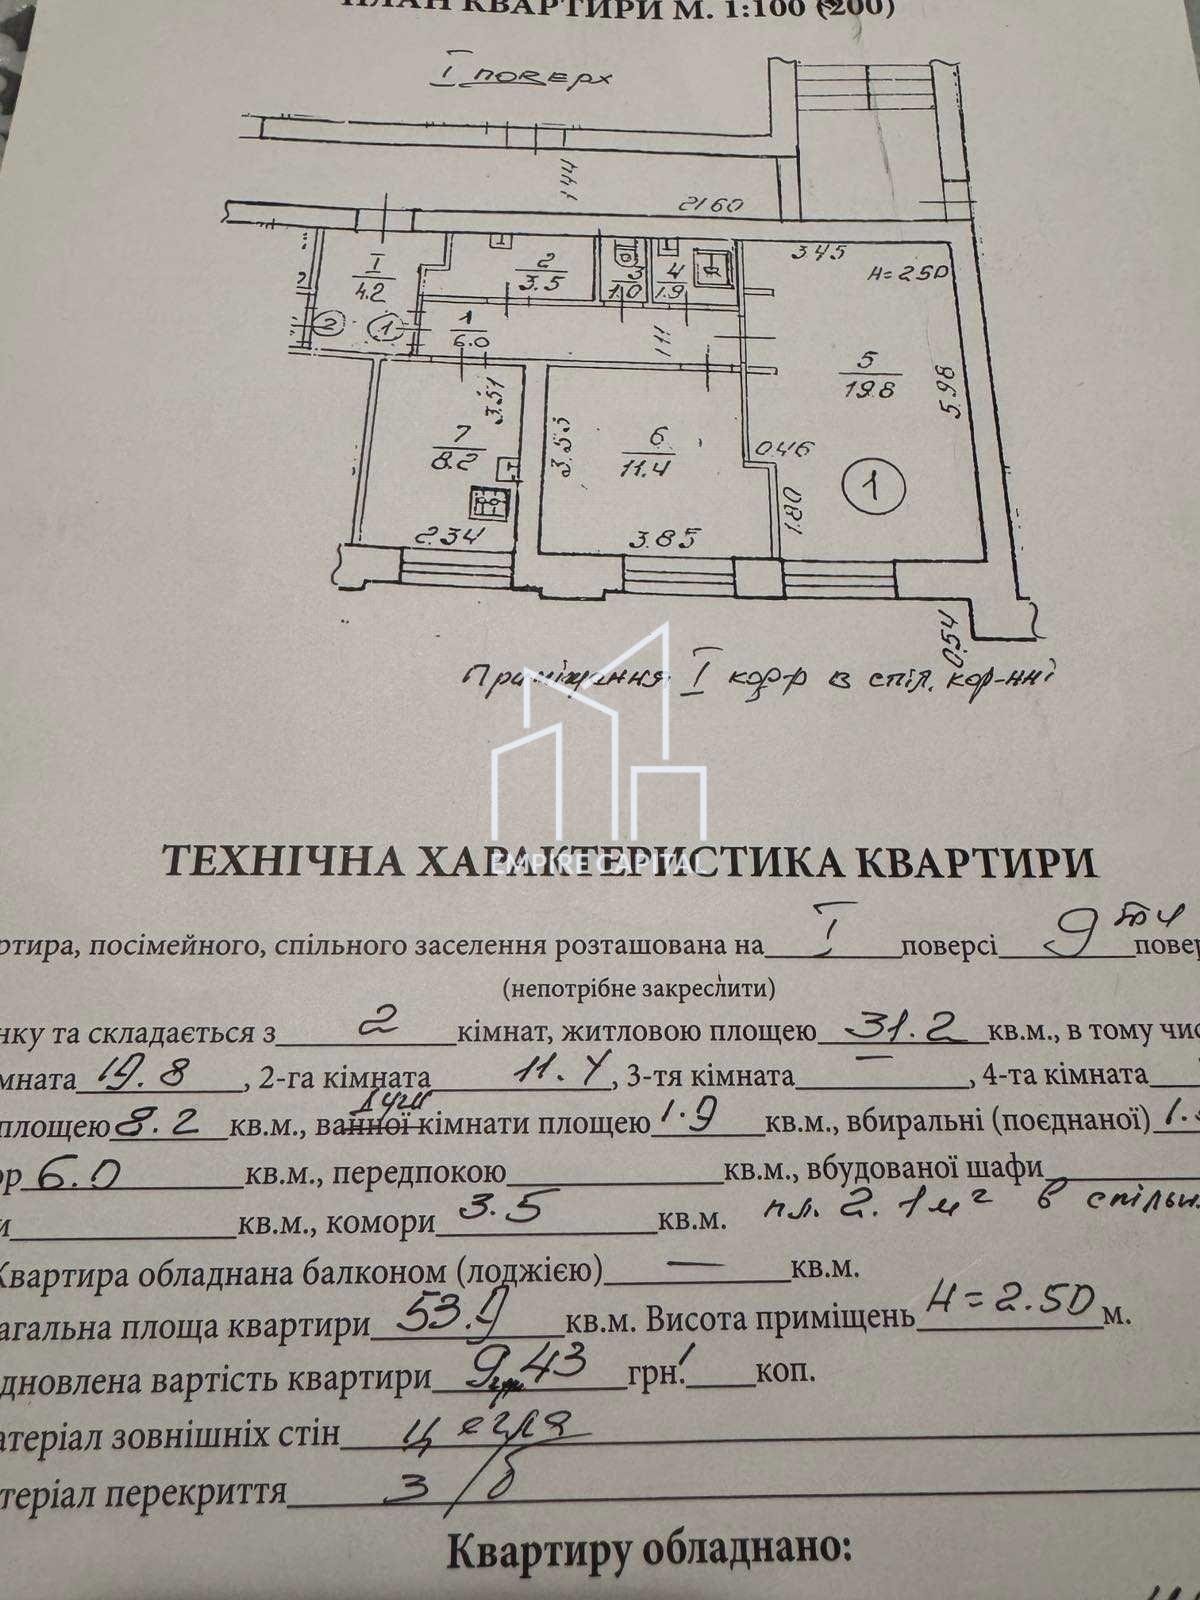 ПЛАН КВАРТИРИ М. 1:100 (200)
I поверх
1.44
21.60
3.45
H=2.50
I
4.2
2
3.5
3
1.0
4
1.9
2
1
1
6.0
1.11
5
19.8
5.98
3.51
7
8.2
3.55
6
11.4
0.46
1
1.80
2.34
3.85
0.54
Приміщення I кор-р в спіл. кор-нні
EMPIRE CAPITAL
ТЕХНІЧНА ХАРАКТЕРИСТИКА КВАРТИРИ
ртира, посімейного, спільного заселення розташована на I поверсі 9ти повер
(непотрібне закреслити)
нку та складається з 2 кімнат, житловою площею 31.2 кв.м., в тому чис
мната 19.8, 2-га кімната 11.4, 3-тя кімната —, 4-та кімната
площею 8.2 кв.м., ванної душ кімнати площею 1.9 кв.м., вбиральні (поєднаної) 1.
ор 6.0 кв.м., передпокою кв.м., вбудованої шафи
и кв.м., комори 3.5 кв.м. пл. 2.1 м² в спільн.
Квартира обладнана балконом (лоджією) — кв.м.
агальна площа квартири 53.9 кв.м. Висота приміщень H=2.50 м.
дновлена вартість квартири 9 43 грн. коп.
атеріал зовнішніх стін цегла
теріал перекриття з/б
Квартиру обладнано: